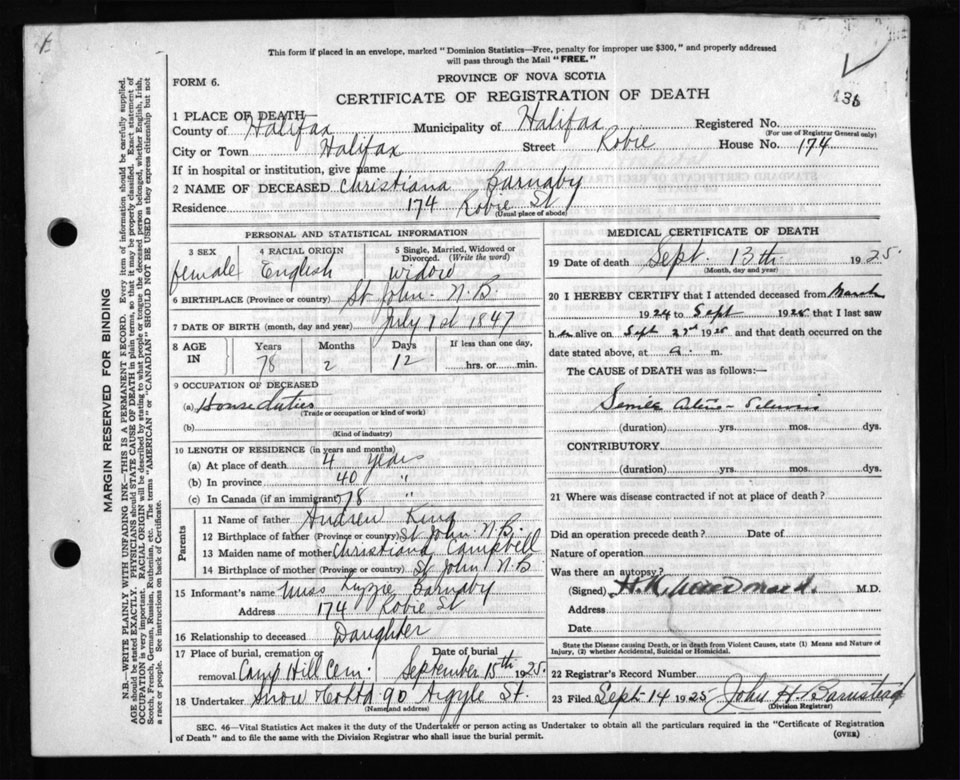 This form if placed in an envelope, marked "Dominion Statistics—Free, penalty for improper use $300," and properly addressed
will pass through the Mail "FREE."
FORM 6.
PROVINCE OF NOVA SCOTIA
CERTIFICATE OF REGISTRATION OF DEATH
436
1 PLACE OF DEATH
County of Halifax Municipality of Halifax Registered No.
(For use of Registrar General only)
City or Town Halifax Street Robie House No. 174
If in hospital or institution, give name
2 NAME OF DECEASED Christiana Barnaby
Residence 174 Robie St
(Usual place of abode)
PERSONAL AND STATISTICAL INFORMATION
3 SEX 4 RACIAL ORIGIN 5 Single, Married, Widowed or
Divorced. (Write the word)
female English widow
6 BIRTHPLACE (Province or country) St John. N.B.
7 DATE OF BIRTH (month, day and year) July 1st 1847
8 AGE IN Years Months Days If less than one day,
78 2 12 hrs. or min.
9 OCCUPATION OF DECEASED
(a) House duties
(Trade or occupation or kind of work)
(b)
(Kind of industry)
10 LENGTH OF RESIDENCE (in years and months)
(a) At place of death 4 years
(b) In province 40 "
(c) In Canada (if an immigrant) 78 "
Parents
11 Name of father Andrew King
12 Birthplace of father (Province or country) St John N.B.
13 Maiden name of mother Christiana Campbell
14 Birthplace of mother (Province or country) St John N.B
15 Informant's name Miss Lizzie Barnaby
Address 174 Robie St
16 Relationship to deceased Daughter
17 Place of burial, cremation or Date of burial
removal Camp Hill Cem. September 15th 1925.
18 Undertaker Snow & Co Ltd 90 Argyle St.
(Name and address)
MEDICAL CERTIFICATE OF DEATH
19 Date of death Sept. 13th 1925.
(Month, day and year)
20 I HEREBY CERTIFY that I attended deceased from March
1924 to Sept 1925 that I last saw
her alive on Sept 1925 and that death occurred on
date stated above, at a. m.
The CAUSE of DEATH was as follows:—
Senile
(duration) yrs. mos. dys.
CONTRIBUTORY
(duration) yrs. mos. dys.
21 Where was disease contracted if not at place of death?
Did an operation precede death? Date of
Nature of operation
Was there an autopsy?
(Signed) M.D.
Address
Date
State the Disease causing Death, or in death from Violent Causes, state (1) Means and Nature of
Injury, (2) whether Accidental, Suicidal or Homicidal.
22 Registrar's Record Number
23 Filed Sept 14 1925 John H. Barnstead
(Division Registrar)
SEC. 46—Vital Statistics Act makes it the duty of the Undertaker or person acting as Undertaker to obtain all the particulars required in the "Certificate of Registration
of Death" and to file the same with the Division Registrar who shall issue the burial permit.
(OVER)
MARGIN RESERVED FOR BINDING
N.B.—WRITE PLAINLY WITH UNFADING INK—THIS IS A PERMANENT RECORD. Every item of information should be carefully supplied.
AGE should be stated EXACTLY. PHYSICIANS should STATE CAUSE OF DEATH in plain terms, so that it may be properly classified. Exact statement of
OCCUPATION is very important. RACIAL ORIGIN will be described by stating to what people or tongue the deceased person belonged, whether English, Irish,
Scotch, French, German, Russian, Ruthenian, etc. The terms "AMERICAN" or "CANADIAN" SHOULD NOT BE USED as they express citizenship but not
a race or people. See instructions on back of Certificate.